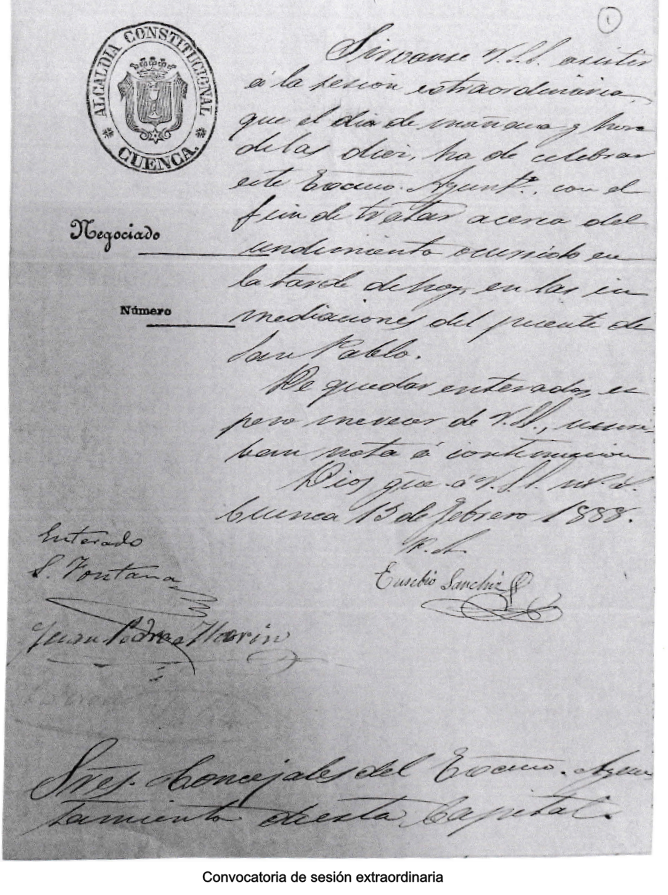 1
ALCALDIA CONSTITUCIONAL
CUENCA.
Sirvanse V.S.S. asistir
á la sesión extraordinaria
que el dia de mañana y hora
de las diez, ha de celebrar
este Excmo. Ayunto., con el
fin de tratar acerca del
hundimiento ocurrido en
la tarde de hoy, en las in
mediaciones del puente de
San Pablo.
Negociado
Número
De quedar enterados, es
pero merecer de V.S.S., suscri-
ban nota á continuación
Dios gue. á V.S.S. m. a.
Cuenca 13 de Febrero 1888.
Enterado
S. Fontana
Eusebio Sanchiz
Juan Marin
Sres. Concejales del Excmo. Ayun
tamiento de esta Capital.
Convocatoria de sesión extraordinaria